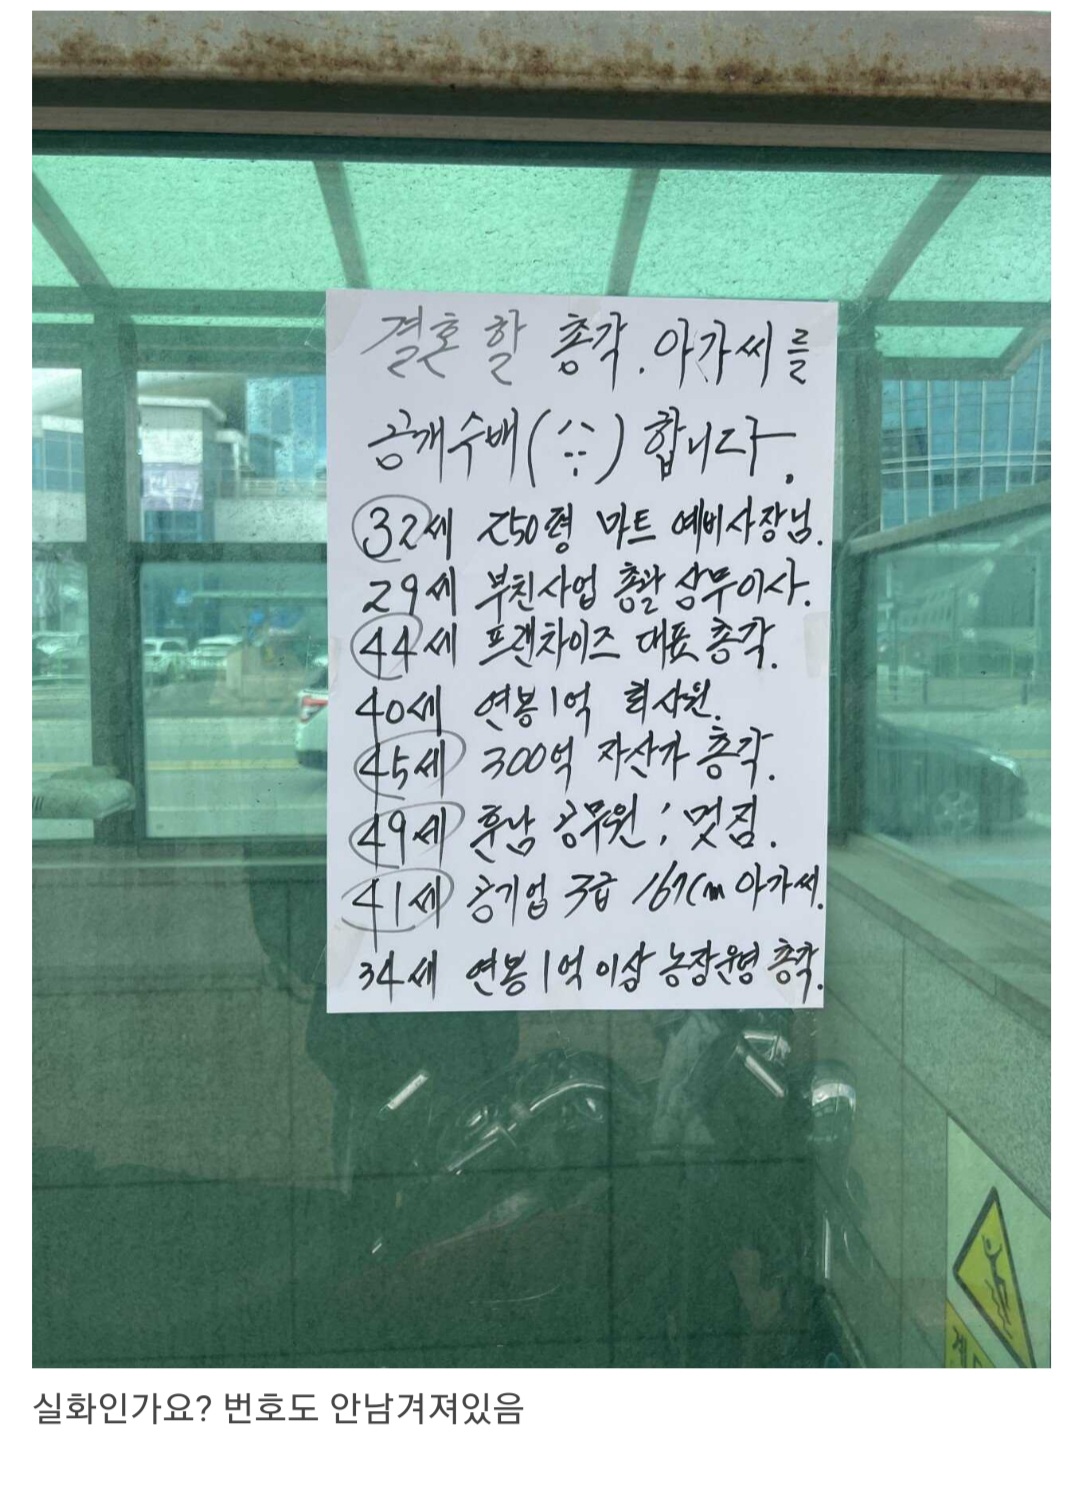 결혼 할 총각. 아가씨를
공개수배(^^) 합니다.
32세 250평 마트 예비사장님.
29세 부친사업 총괄 상무이사.
44세 프랜차이즈 대표 총각.
40세 연봉 1억 회사원.
45세 300억 자산가 총각.
49세 훈남 공무원; 멋짐.
41세 공기업 3급 167cm 아가씨.
34세 연봉 1억 이상 농장운영 총각.
실화인가요? 번호도 안남겨져있음